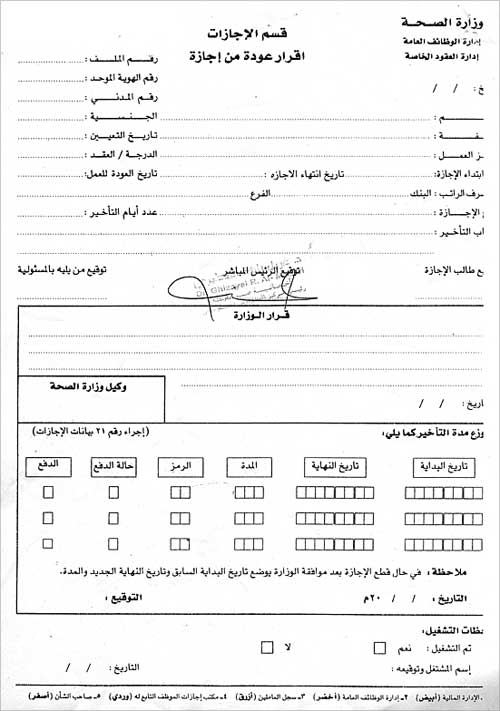 وزارة الصحـــة
إدارة الوظائف العامة
إدارة العقود الخاصة
قسم الإجازات
اقرار عودة من إجازة
رقــم المـلــف :
رقم الهوية الموحد :
رقـم المـدنـــي :
الجنـسـيــة :
تاريـخ التعيين :
الدرجة / العقد :
خ : / /
ــم :
فــة :
ـز العمـل :
ابتداء الإجازة: تاريخ انتهاء الاجازه : تاريخ العودة للعمل:
ـرف الراتب : البنك الفرع
ع الإجـازة : عدد أيام التأخير :
ـاب التأخير :
ـع طالب الإجازة توقيع الرئيس المباشر توقيع من يليه بالمسئولية
Dr. Ghizayel R.
قـرار الـوزارة
وكيل وزارة الصحة
ـاريخ : / /
ـوزع مدة التأخير كما يلي: (إجراء رقم ٢١ بيانات الإجازات)
تاريخ البداية تاريخ النهاية المدة الرمز حالة الدفع الدفع
ملاحظة : في حال قطع الإجازة بعد موافقة الوزارة يوضع تاريخ البداية السابق وتاريخ النهاية الجديد والمدة.
التاريخ : / / ٢٠م التوقيع :
ـظات التشغيل:
تم التشغيل : نعم لا
إسم المشتغل وتوقيعه : التاريخ : / /
ـ الإدارة المالية (أبيض) ٢ـ إدارة الوظائف العامة (أخضر) ٣ـ سجل العاملين (أزرق) ٤ـ مكتب إجازات الموظف التابع له (وردي) ٥ـ صاحب الشأن (أصفر)